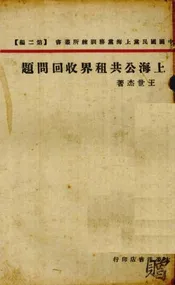 中國國民黨上海黨務訓練所叢書【第二編】
上海公共租界收回問題
王世杰著
書店印行
贈